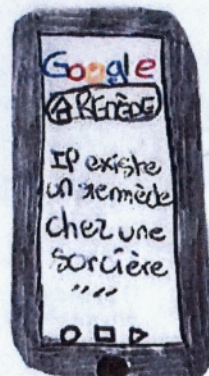 Google
REMÈDE
Il existe
un remmède
chez une
sorcière
""